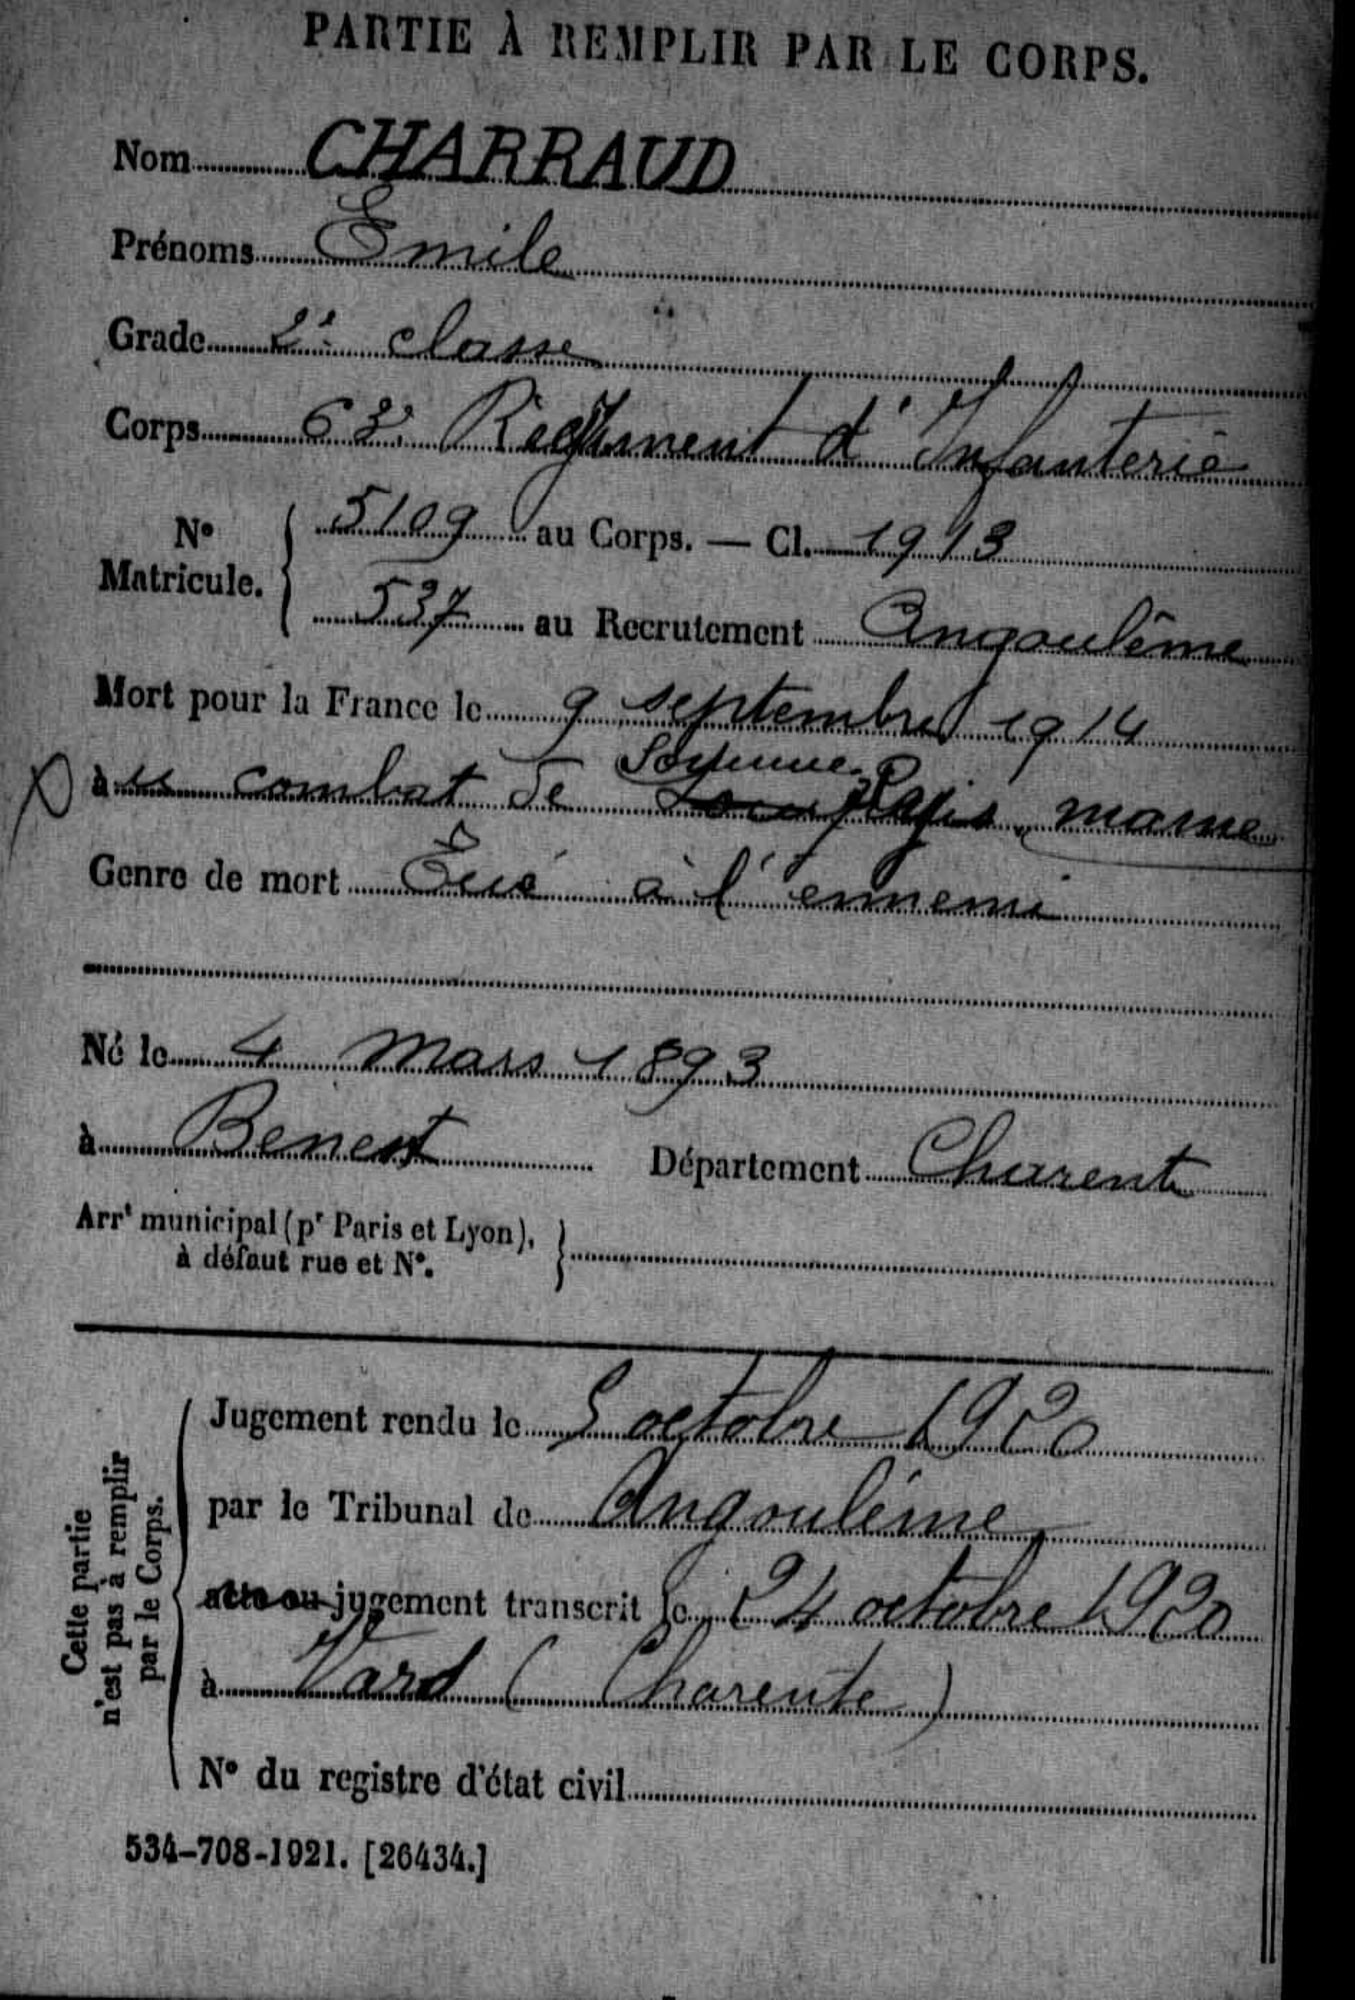 PARTIE À REMPLIR PAR LE CORPS.
Nom CHARRAUD
Prénoms Emile
Grade 2e classe
Corps 63e Régiment d'Infanterie
No Matricule. { 5109 au Corps. — Cl. 1913
537 au Recrutement Angoulême
Mort pour la France le 9 septembre 1914
à combat de marne
Genre de mort Tué à l'ennemi
Né le 4 mars 1893
à Benest Département Charente
Arrt municipal (pr Paris et Lyon),
à défaut rue et No. }
Cette partie
n'est pas à remplir
par le Corps.
Jugement rendu le 5 octobre 1920
par le Tribunal de Angoulême
acte ou jugement transcrit le 24 octobre 1920
à (Charente)
No du registre d'état civil
534-708-1921. [26434.]